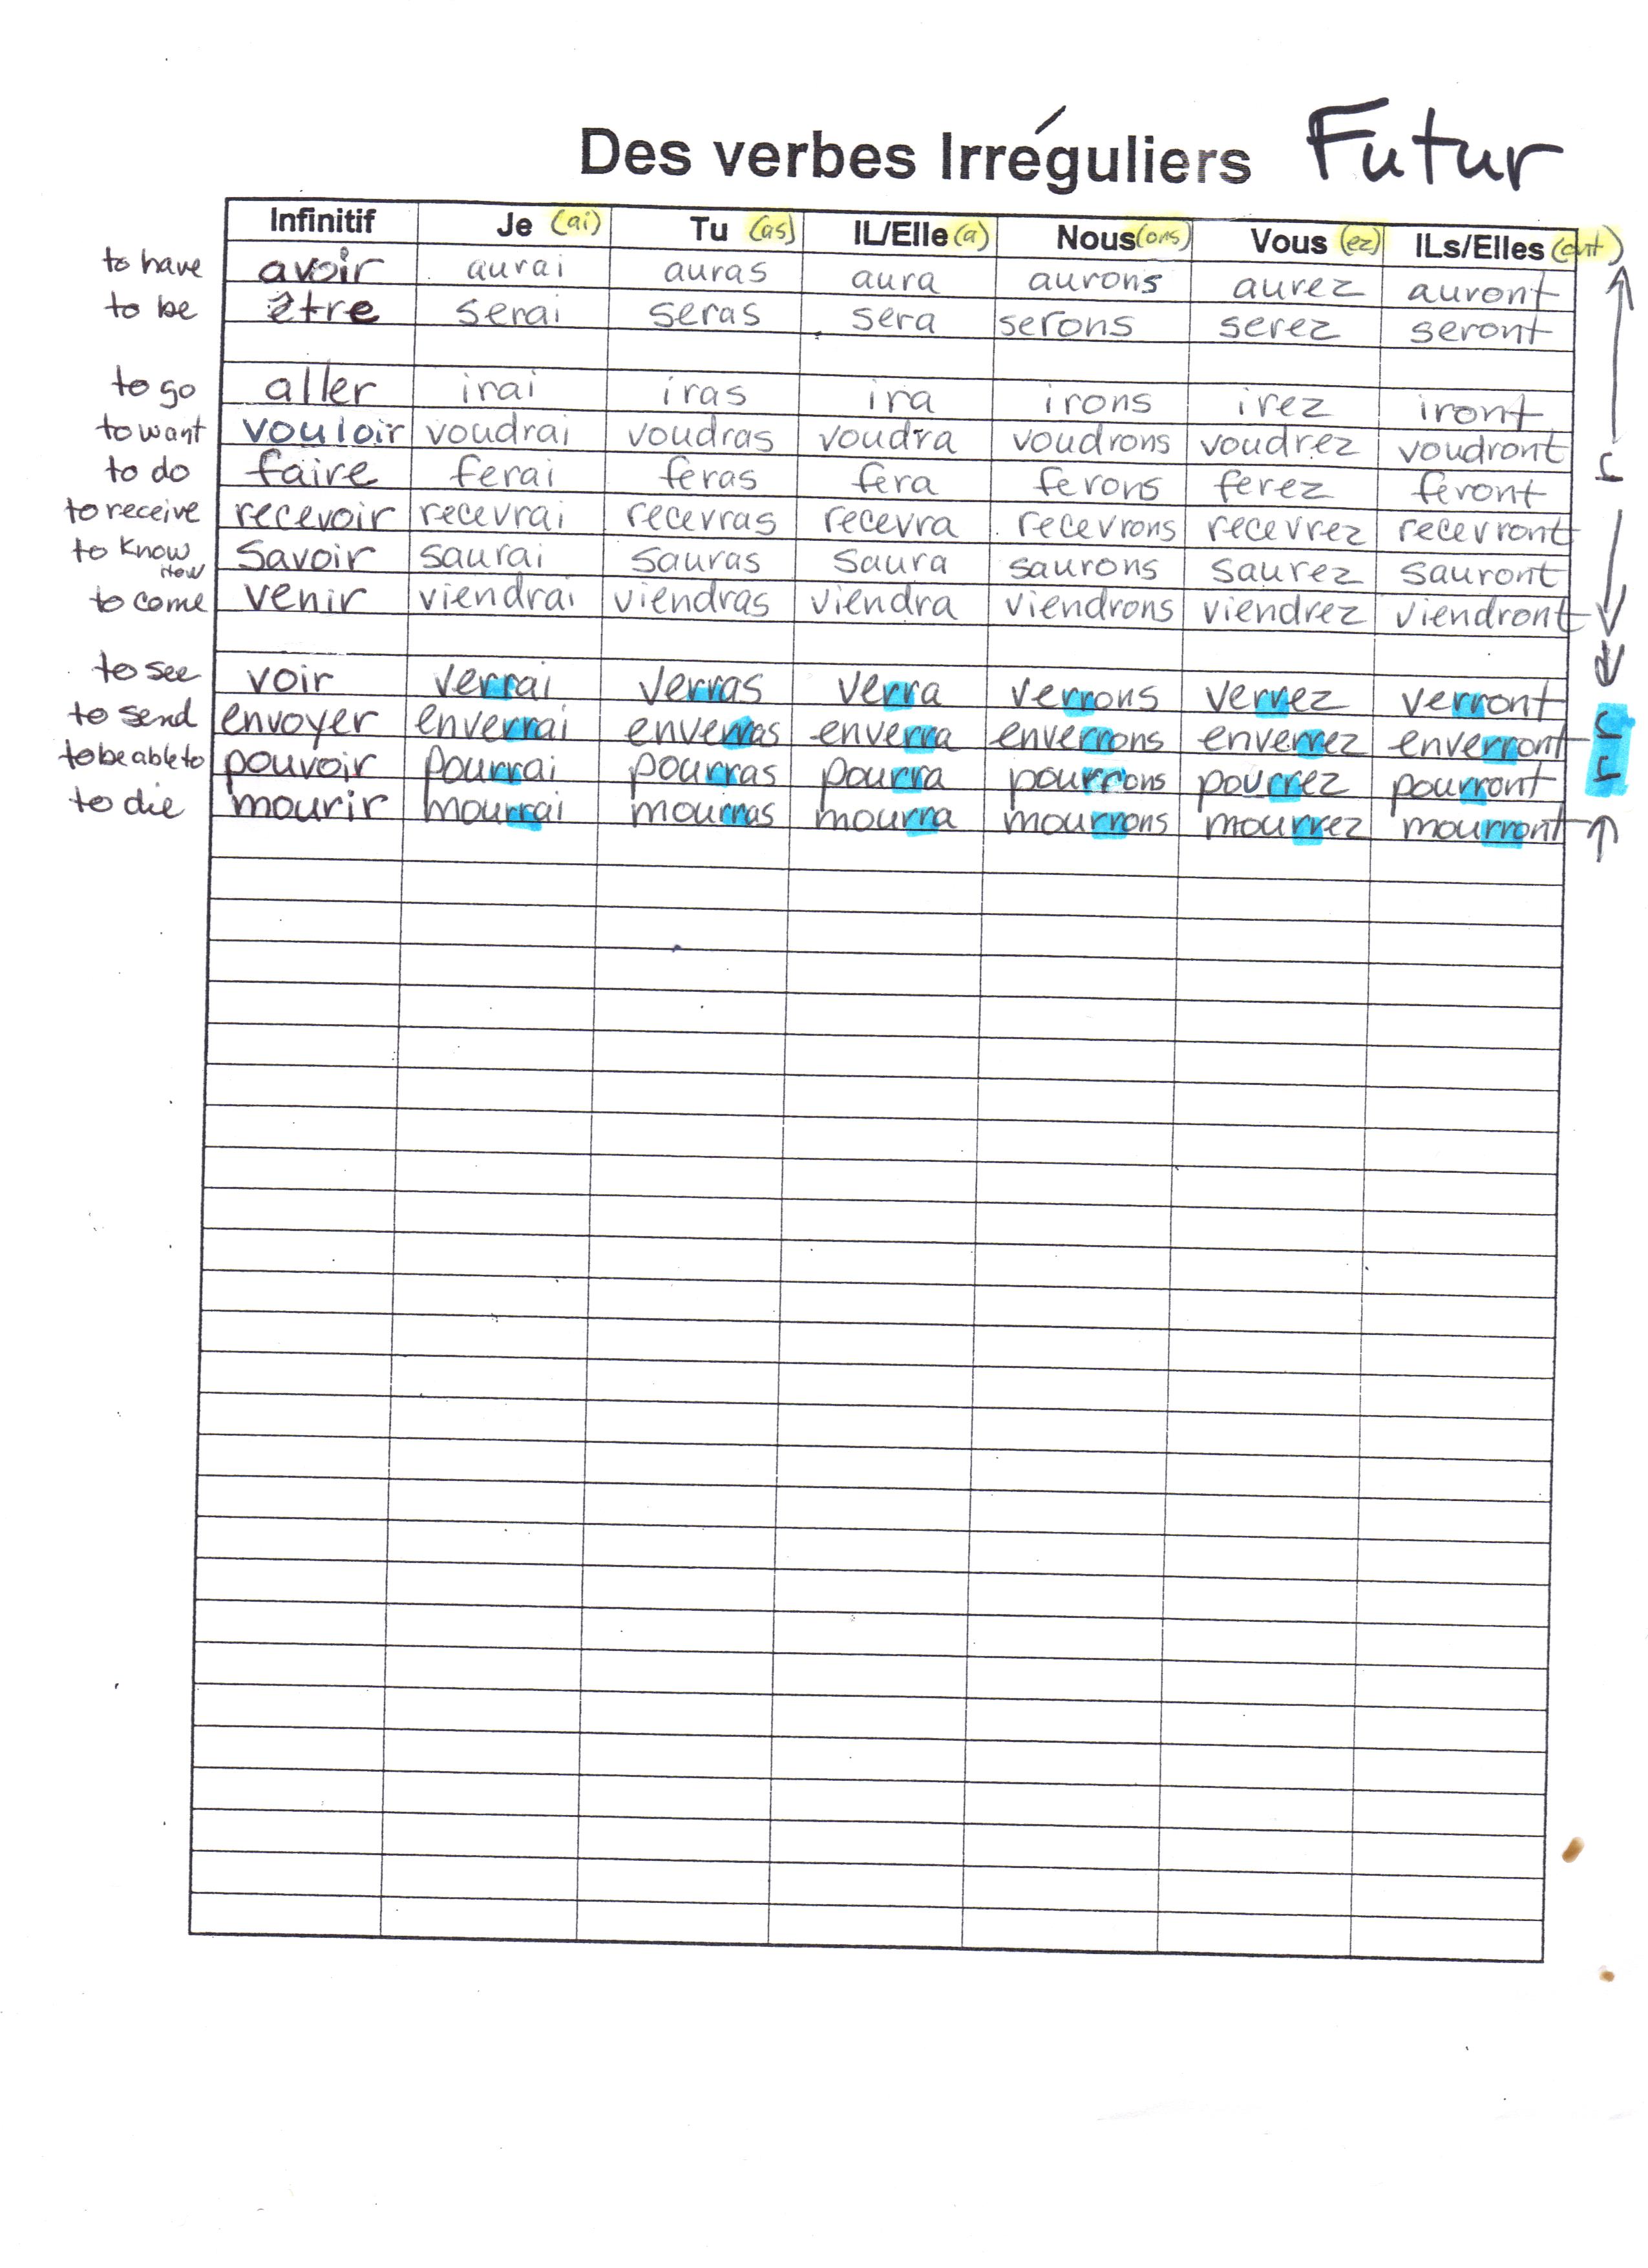 Des verbes Irréguliers Futur
Infinitif Je (ai) Tu (as) IL/Elle (a) Nous (ons) Vous (ez) ILs/Elles (ont)
to have avoir aurai auras aura aurons aurez auront
to be être serai seras sera serons serez seront
to go aller irai iras ira irons irez iront
to want vouloir voudrai voudras voudra voudrons voudrez voudront
r
to do faire ferai feras fera ferons ferez feront
to receive recevoir recevrai recevras recevra recevrons recevrez recevront
to know how savoir saurai sauras saura saurons saurez sauront
to come venir viendrai viendras viendra viendrons viendrez viendront
to see voir verrai verras verra verrons verrez verront
to send envoyer enverrai enverras enverra enverrons enverrez enverront
r
to be able to pouvoir pourrai pourras pourra pourrons pourrez pourront
r
to die mourir mourrai mourras mourra mourrons mourrez mourront